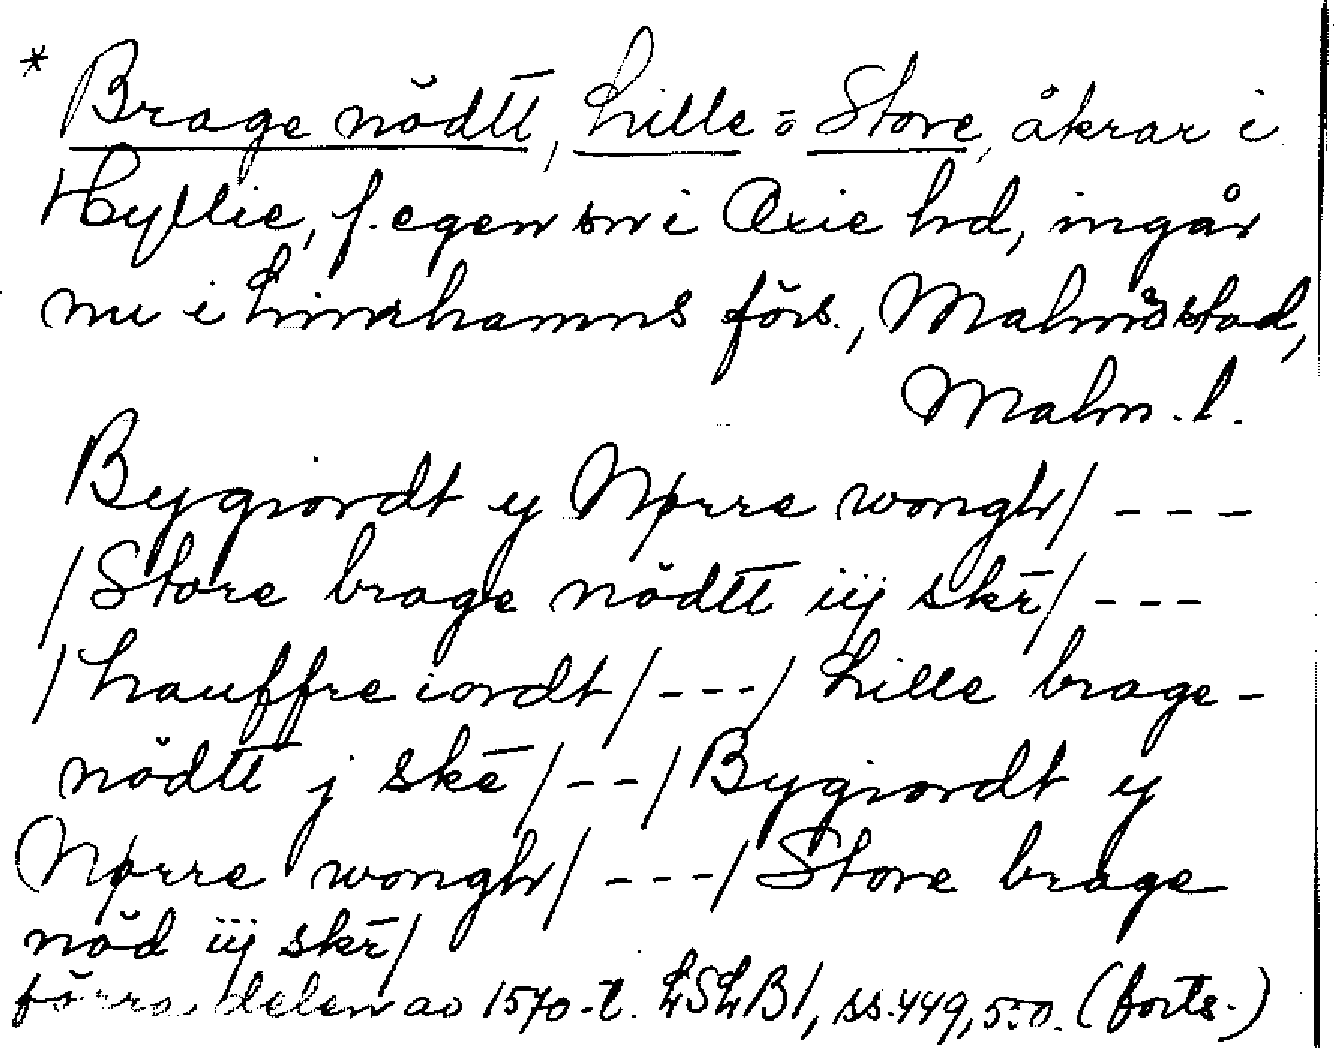 * Brage nödtt̄, Lille o Store, åkrar i
Hyllie, f. egen sn i Oxie hd, ingår
nu i Limhamns förs., Malmö stad,
Malm. l.
Bygiordt y Nørre wongh/ - - -
/Store brage nödtt̄ iij skr̄/ - - -
/hauffre iordt/ - - - / Lille brage-
nödtt̄ j skē / - - / Bygiordt y
Nørre wongh/ - - - / Store brage
nöd iij skr̄/
förra delen av 1570-t. LSLB 1, ss. 449, 550. (forts.)